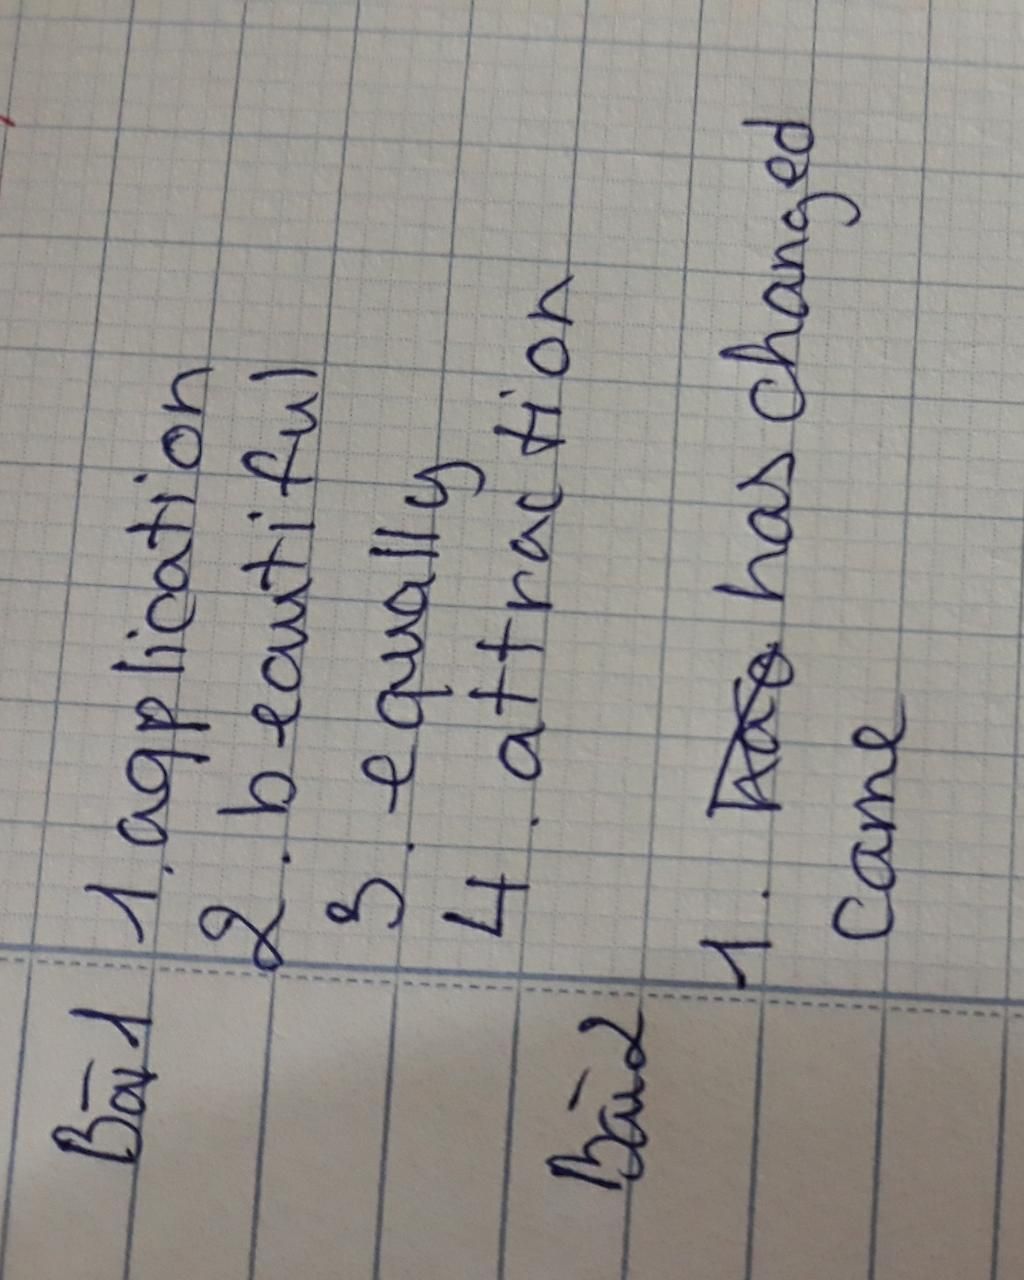 Bài 1 1. application
2. beautiful
3. equally
4. attraction
Bài 2 1. has changed
came